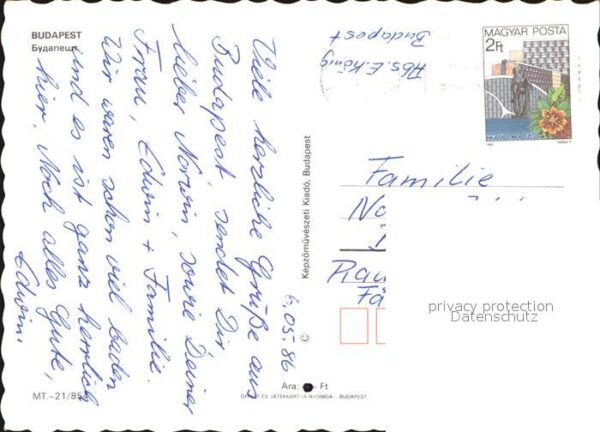 BUDAPEST
Будапешт
6.05.86
Viele herzliche Grüße aus
Budapest, sendet Dir,
lieber Norwin, sowie Deiner
Frau, Edwin + Familie.
Wir waren schon viel baden
und es ist ganz herrlich
hier. Noch alles Gute,
Edwin.
MT.-21/85
Képzőművészeti Kiadó, Budapest
©
Ara: - Ft
ÉS JÁTÉKKÁRTYA NYOMDA - BUDAPEST
Abs. E. König
Budapest
MAGYAR POSTA
2Ft
Familie
No
Rau
Fä
privacy protection
Datenschutz